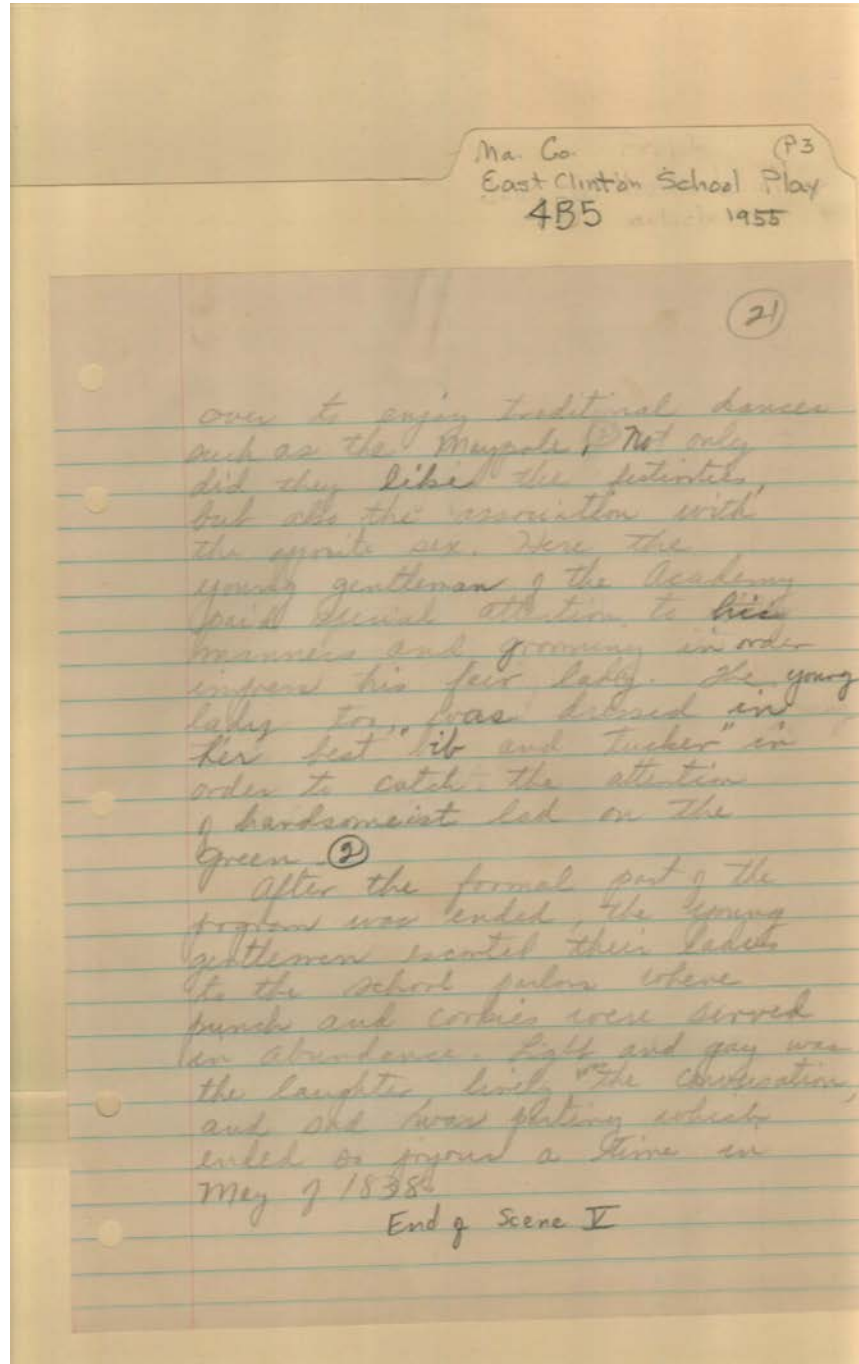 Ma. Co. P3
East Clinton School Play
4B5 1955
21
over to enjoy traditinal dances
such as the Maypole, Not only
did they like the festivities,
but also the association with
the opposite sex. Here the
young gentleman of the Academy
paid special attention to his
manners and grooming in order
impress his fair lady. The young
lady too, was dressed in
her best "bib and Tucker" in
order to catch the attention
of handsomeist lad on the
green. 2
After the formal part of the
program was ended, the young
gentlemen escorted their ladies
to the school parlors where
punch and cookies were served
in abundance. Light and gay was
the laughter lively was the conversation,
and sad was parting which
ended so joyous a time in
May of 1838.
End of Scene V